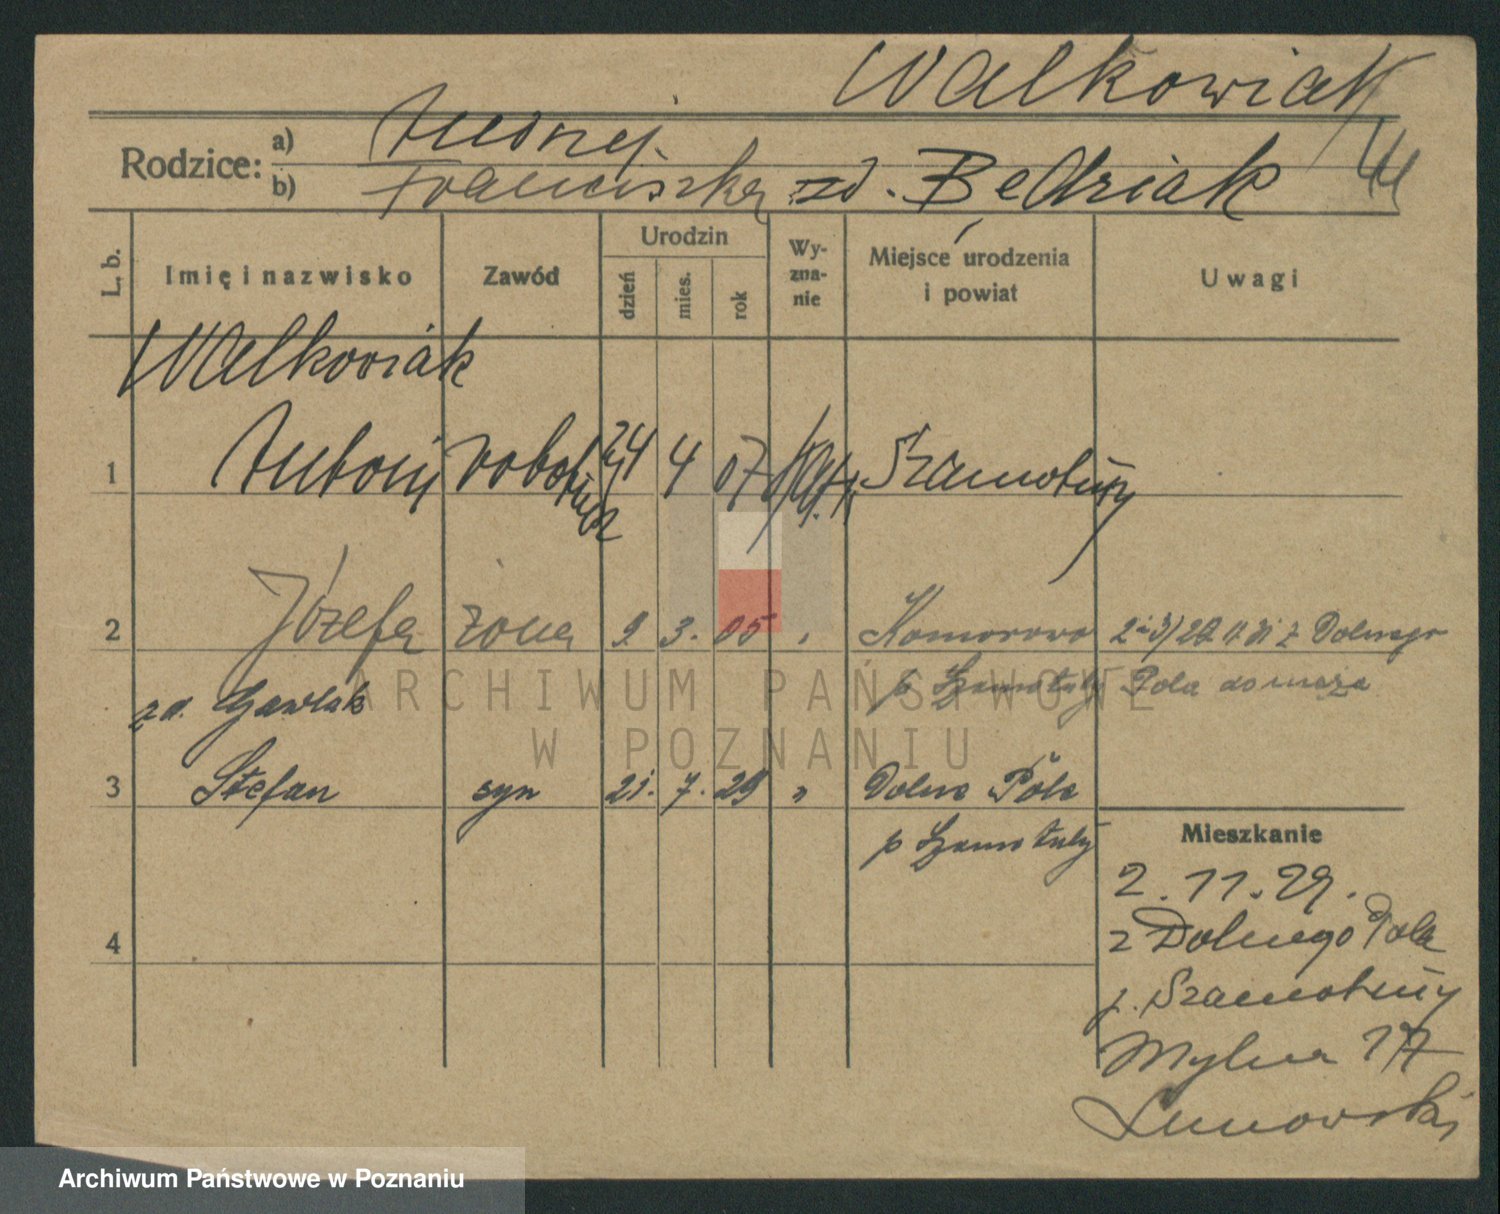 Walkowiak
Rodzice: a) Andrzej
b) Franciszka zd. Bedziak
L. b. Imię i nazwisko Zawód Urodzin dzień mies. rok Wy-zna-nie Miejsce urodzenia i powiat Uwagi
Walkowiak
1 Antoni robotnik 4 07 kat. Szamotuły
2 Józefa żona 9 3. 05 " Komorowo 2 i 3) z Dolnego
zd. Gawlak p Szamotuły Pola do męża
3 Stefan syn 21. 7. 29 " Dolne Pole
p Szamotuły
Mieszkanie
4
2.11.29.
z Dolnego Pola
p. Szamotuły
Mylna 17
ARCHIWUM PAŃSTWOWE
W POZNANIU
Archiwum Państwowe w Poznaniu